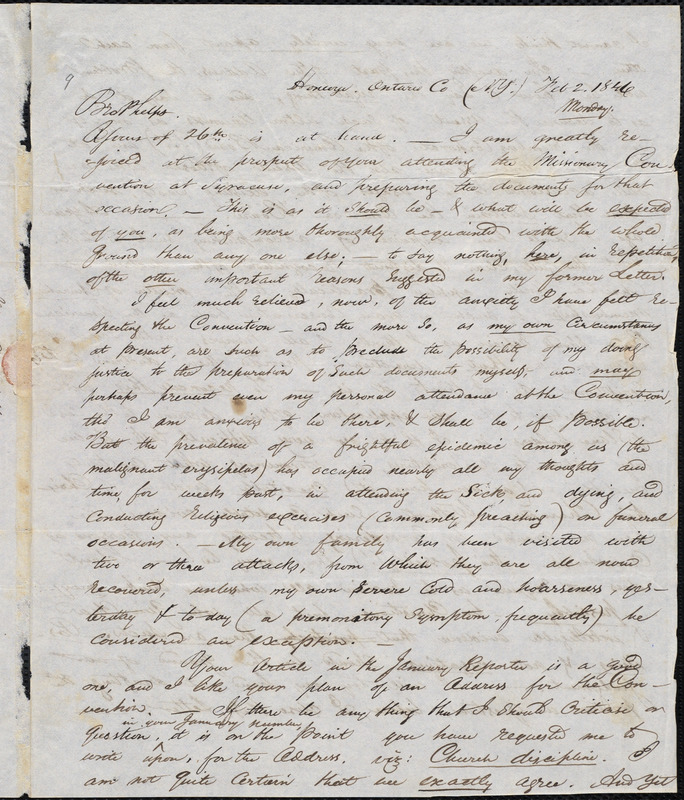 9
Honeoye. Ontario Co (N.Y.) Feb 2. 1846
Monday.
Bro Phelps.
Yours of 26th is at hand. — I am greatly re-
joiced at the prospect of your attending the Missionary Con-
vention at Syracuse, and preparing the documents for that
occasion. — This is as it should be — & what will be expected
of you, as being more thoroughly acquainted with the whole
ground than any one else; — to say nothing, here, in repetition,
of the other important reasons suggested in my former Letter.
I feel much relieved, now, of the anxiety I have felt re-
specting the Convention — and the more so, as my own circumstances
at present, are such as to preclude the possibility of my doing
justice to the preparation of such documents myself, and may
perhaps prevent even my personal attendance at the Convention,
tho' I am anxious to be there, & shall be, if possible.
But the prevalence of a frightful epidemic among us (the
malignant erysipelas) has occupied nearly all my thoughts and
time, for weeks past, in attending the sick, and dying, and
conducting religious exercises (commonly preaching) on funeral
occasions. — My own family has been visited with
two or three attacks, from which they are all now
recovered, unless my own severe cold and hoarseness, yes-
terday & to-day (a premonitory symptom, frequently) be
considered an exception. —
Your Article in the January Reporter is a good
one, and I like your plan of an Address for the Con-
vention. — If there be any thing that I should criticise or
in your January number
question, it is on the point you have requested me to
write upon, for the Address, viz: Church discipline. I
am not quite certain that we exactly agree. And yet